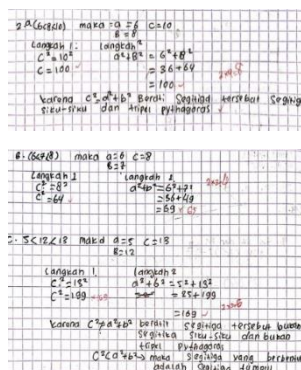 2 a (6<8<10) maka = a = 6 c = 10
B = 8
Langkah 1: Langkah 2
c² = 10² a² + B² = 6² + 8²
c = 100 = 36 + 64
= 100
karena c² = a² + b² Berarti Segitiga tersebut Segitiga
siku-siku dan tripel pythagoras
B. (6<7<8) maka a = 6 c = 8
B = 7
Langkah 1 Langkah 2
c² = 8² a² + b² = 6² + 7²
c² = 64 = 36 + 49
= 69
C. 5<12<13 maka a = 5 c = 13
B = 12
Langkah 1. Langkah 2
c² = 13² a² + b² = 5² + 12²
c² = 199 = 25 + 199
= 169
karena c² ≠ a² + b² berarti segitiga tersebut bukan
segitiga siku-siku dan bukan
tripel pythagoras
c² < (a² + b²) maka segitiga yang
adalah segitiga